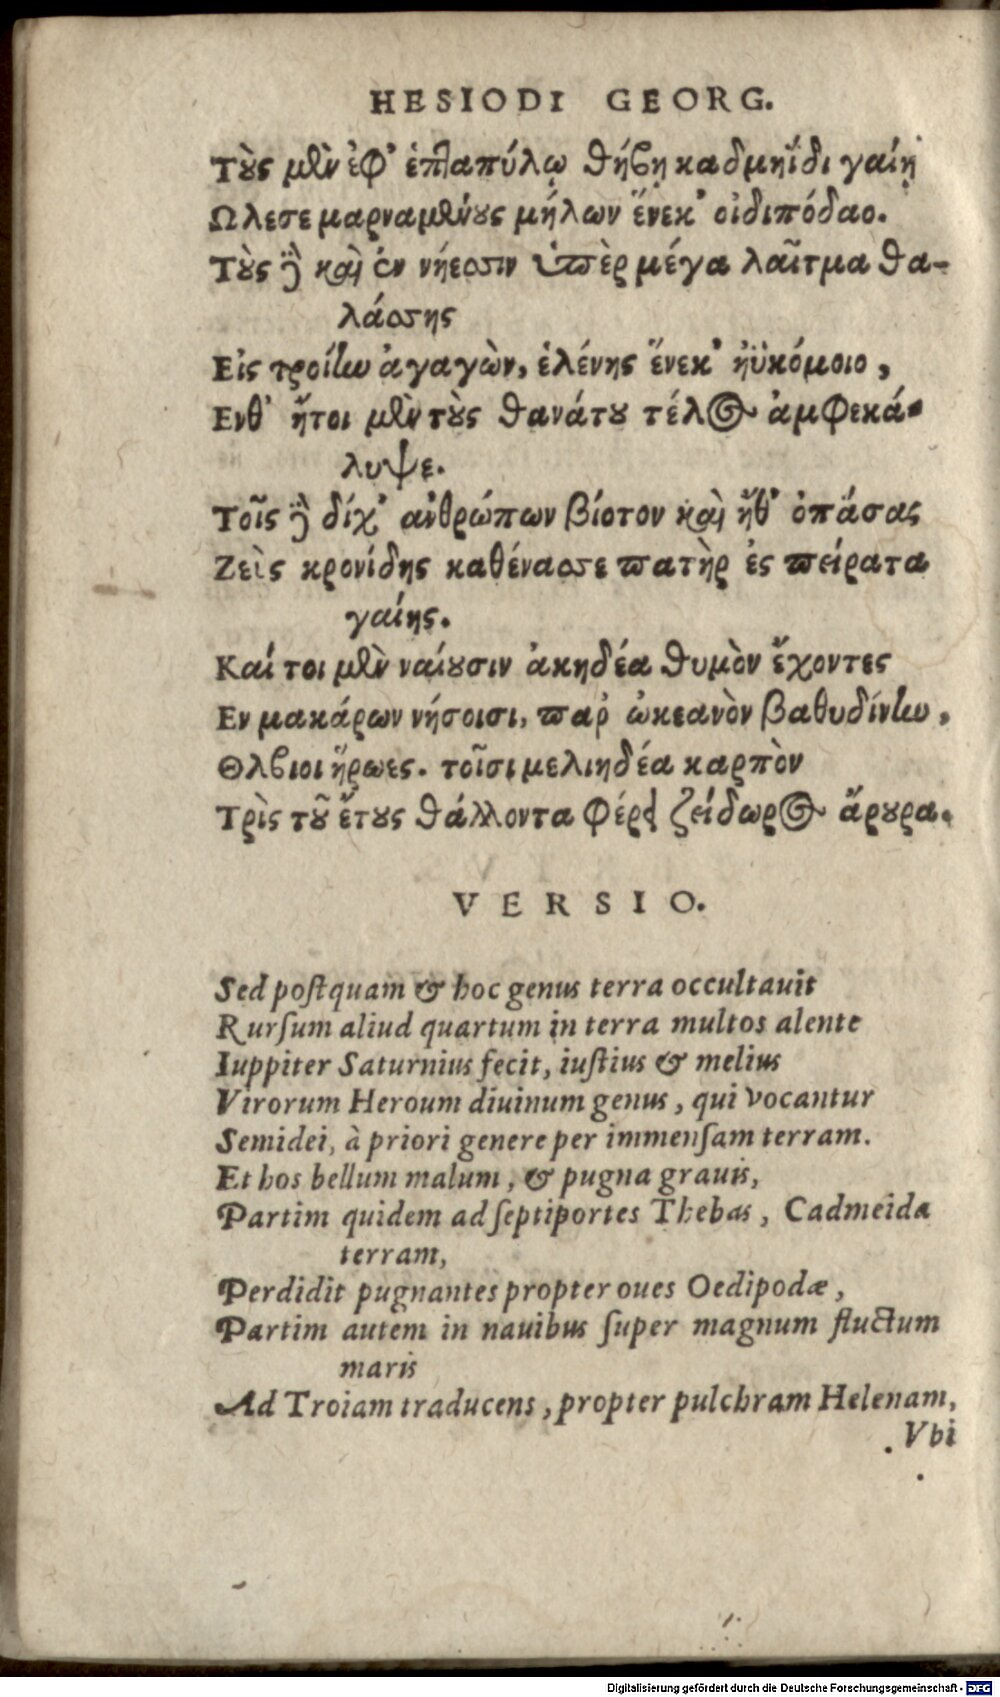 HESIODI GEORG.
Τοὺς μὲν ἐφ᾽ ἑπταπύλῳ θήβῃ καδμηΐδι γαίῃ
Ωλεσε μαρναμένους μήλων ἕνεκ᾽ οἰδιπόδαο.
Τοὺς δὲ καὶ ἐν νήεσσιν ὑπὲρ μέγα λαῖτμα θα-
λάσσης
Εἰς τροίην ἀγαγὼν, ἑλένης ἕνεκ᾽ ἠϋκόμοιο,
Ενθ᾽ ἤτοι μὲν τοὺς θανάτου τέλος ἀμφεκά-
λυψε.
Τοῖς δὲ δίχ᾽ ἀνθρώπων βίοτον καὶ ἤθ᾽ ὀπάσας
Ζεὶς κρονίδης καθένασσε πατὴρ ἐς πείρατα
γαίης.
Καί τοι μὲν ναίουσιν ἀκηδέα θυμὸν ἔχοντες
Εν μακάρων νήσοισι, παρ᾽ ὠκεανὸν βαθυδίνην,
Θλβιοι ἥρωες. τοῖσι μελιηδέα καρπὸν
Τρὶς τοῦ ἔτους θάλλοντα φέρει ζείδωρος ἄρουρα.
VERSIO.
Sed postquam & hoc genus terra occultavit
Rursum aliud quartum in terra multos alente
Iuppiter Saturnius fecit, iustius & melius
Virorum Heroum diuinum genus, qui vocantur
Semidei, à priori genere per immensam terram.
Et hos bellum malum, & pugna grauis,
Partim quidem ad septiportes Thebas, Cadmeida
terram,
Perdidit pugnantes propter oues Oedipodæ,
Partim autem in nauibus super magnum fluctum
maris
Ad Troiam traducens, propter pulchram Helenam,
Vbi
Digitalisierung gefördert durch die Deutsche Forschungsgemeinschaft - DFG